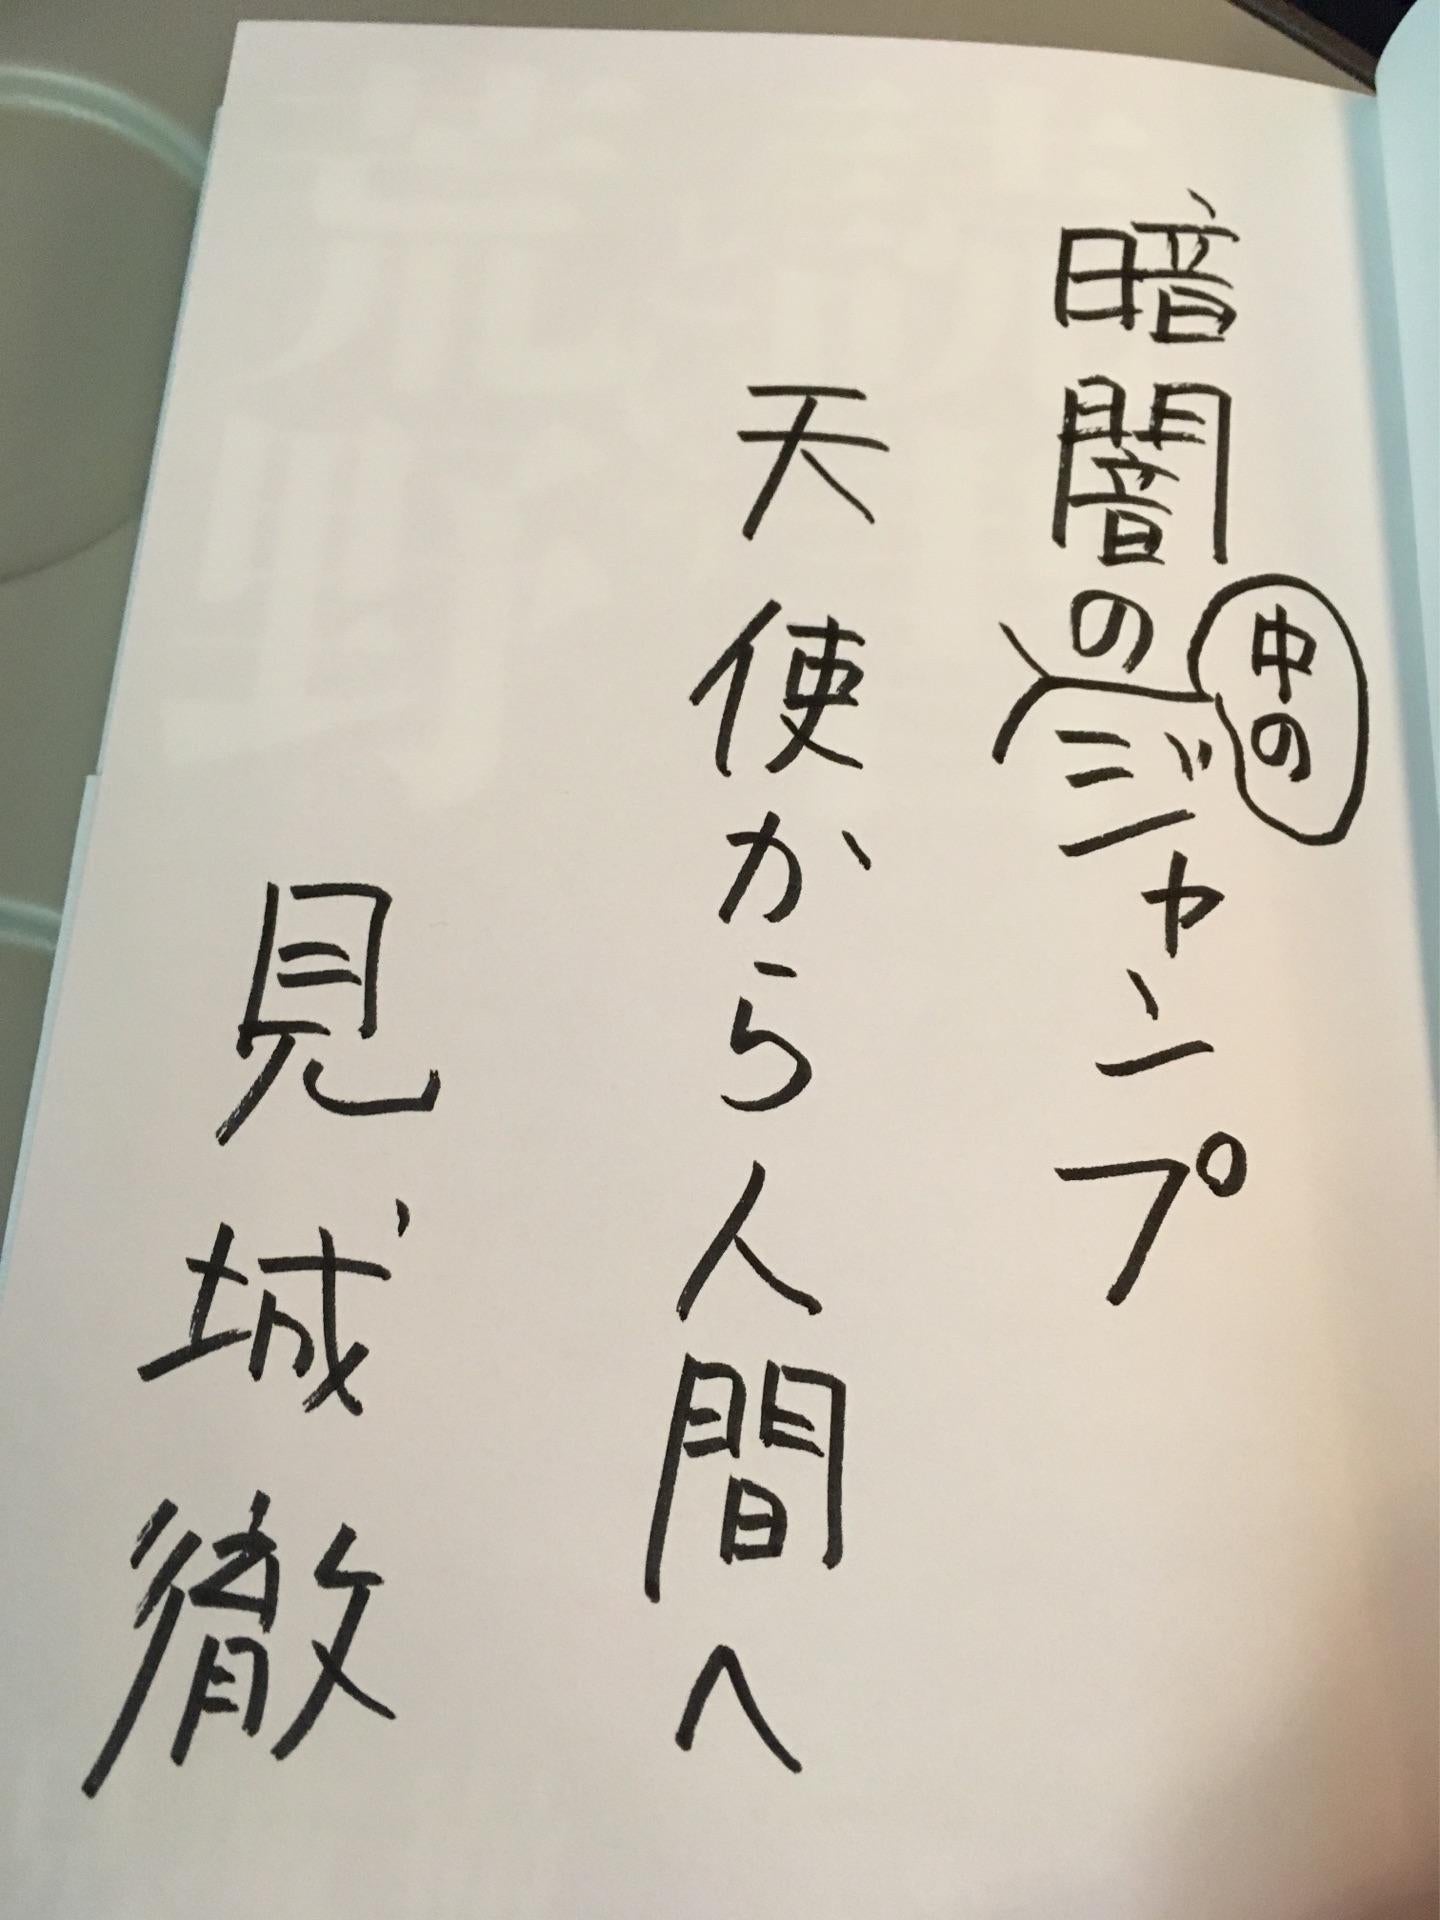 暗闇の中のジャンプ
天使から人間へ
見城徹